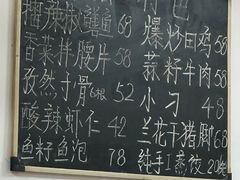 擂辣椒鳝鱼 68
舌菜拌腰片 58
孜然子骨 6根 52
酸辣虾仁 42
鱼籽鱼泡 78
特色
爆炒田鸡 58
蒜籽牛肉 58
小刁 48
兰花干猪脚 68
纯手工蒸饺 20